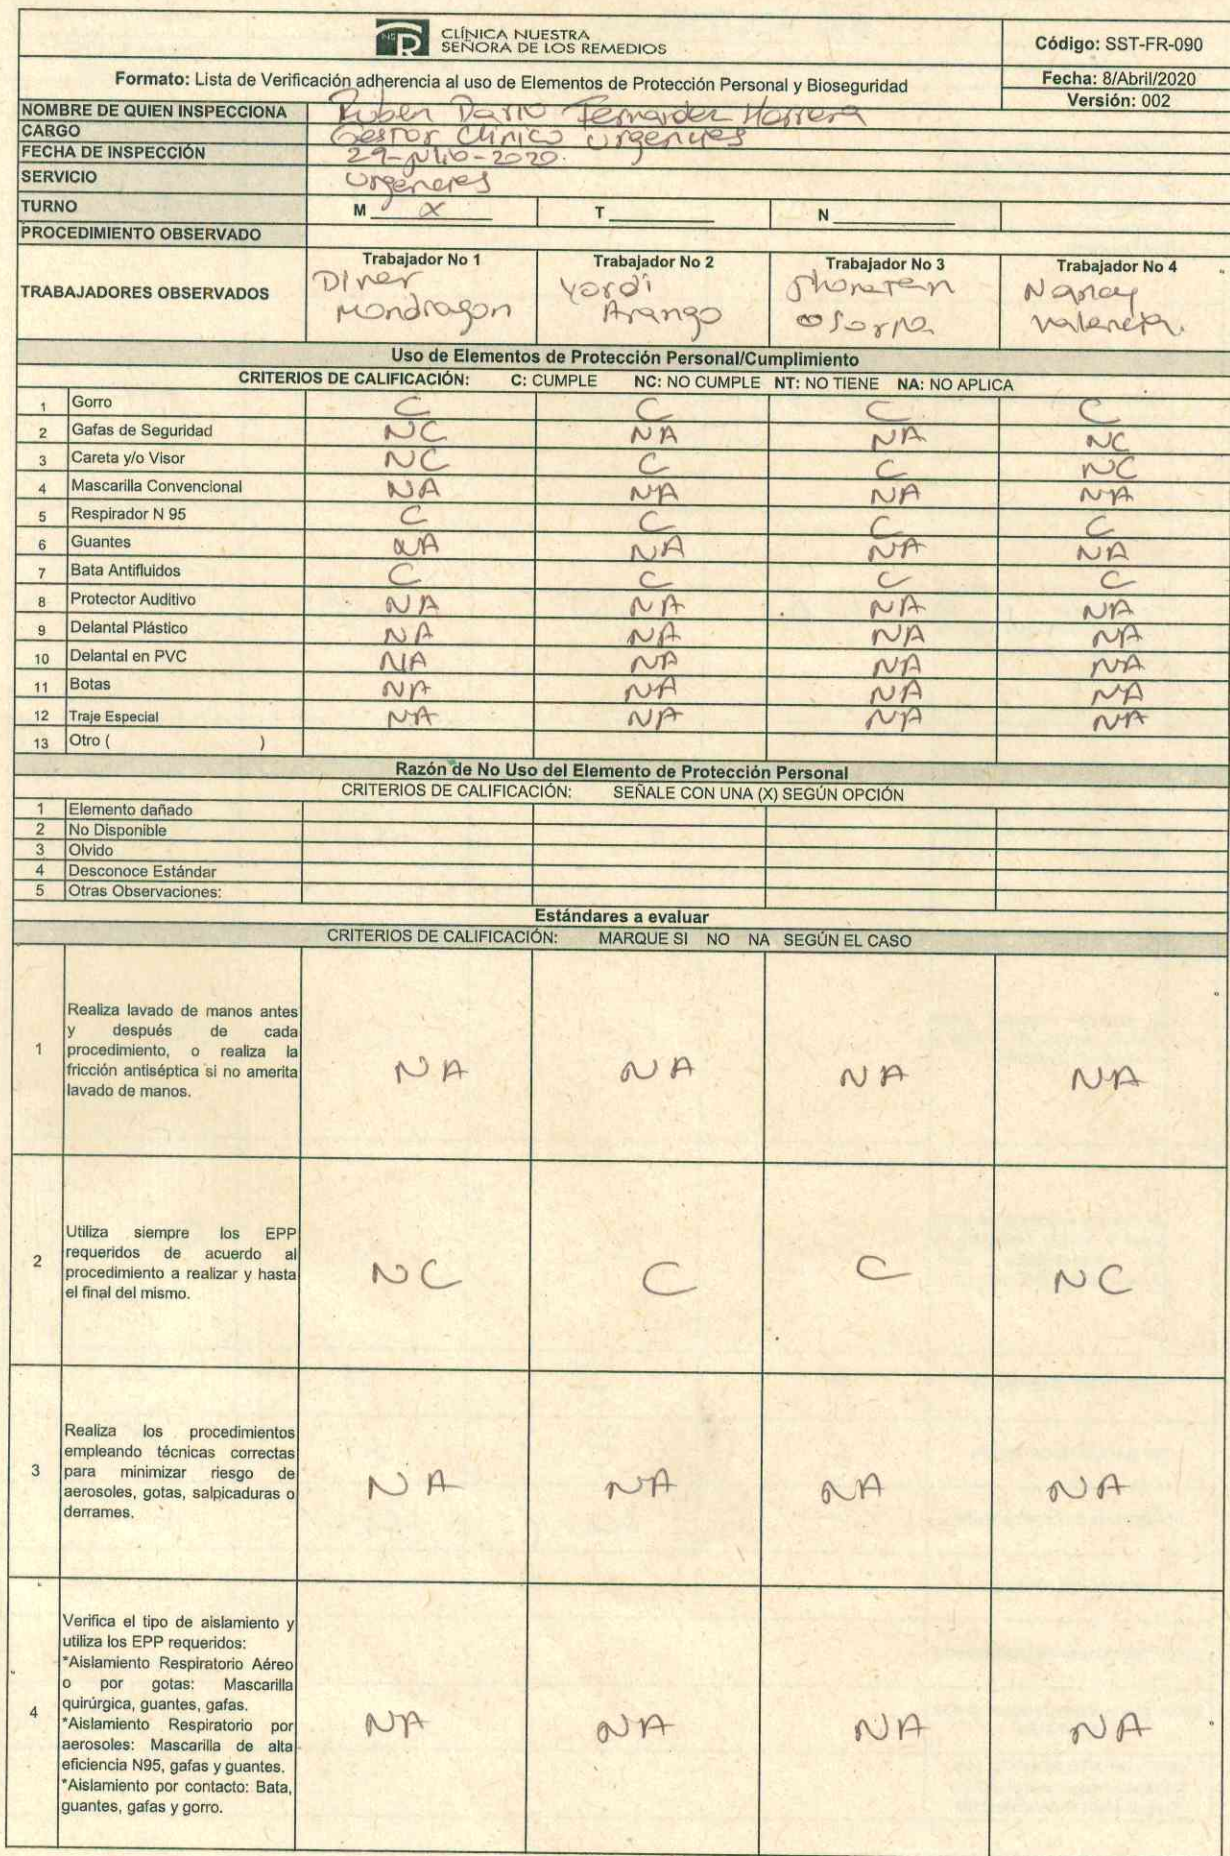 CLÍNICA NUESTRA
SEÑORA DE LOS REMEDIOS
Código: SST-FR-090
Formato: Lista de Verificación adherencia al uso de Elementos de Protección Personal y Bioseguridad
Fecha: 8/Abril/2020
Versión: 002
NOMBRE DE QUIEN INSPECCIONA Ruben Dario Fernandez Herrera
CARGO Gestor Clinico Urgencias
FECHA DE INSPECCIÓN 29-Julio-2020.
SERVICIO Urgencias
TURNO M X T N
PROCEDIMIENTO OBSERVADO
TRABAJADORES OBSERVADOS
Trabajador No 1 Trabajador No 2 Trabajador No 3 Trabajador No 4
Yordi Nancy
Mondragon Arango Valencia
Uso de Elementos de Protección Personal/Cumplimiento
CRITERIOS DE CALIFICACIÓN: C: CUMPLE NC: NO CUMPLE NT: NO TIENE NA: NO APLICA
1 Gorro C C C C
2 Gafas de Seguridad NC NA NA NC
3 Careta y/o Visor NC C C NC
4 Mascarilla Convencional NA NA NA NA
5 Respirador N 95 C C C C
6 Guantes NA NA NA NA
7 Bata Antifluidos C C C C
8 Protector Auditivo NA NA NA NA
9 Delantal Plástico NA NA NA NA
10 Delantal en PVC NA NA NA NA
11 Botas NA NA NA NA
12 Traje Especial NA NA NA NA
13 Otro ( )
Razón de No Uso del Elemento de Protección Personal
CRITERIOS DE CALIFICACIÓN: SEÑALE CON UNA (X) SEGÚN OPCIÓN
1 Elemento dañado
2 No Disponible
3 Olvido
4 Desconoce Estándar
5 Otras Observaciones:
Estándares a evaluar
CRITERIOS DE CALIFICACIÓN: MARQUE SI NO NA SEGÚN EL CASO
Realiza lavado de manos antes
y después de cada
1 procedimiento, o realiza la
fricción antiséptica si no amerita
lavado de manos.
NA NA NA NA
Utiliza siempre los EPP
requeridos de acuerdo al
2 procedimiento a realizar y hasta
el final del mismo.
NC C C NC
Realiza los procedimientos
empleando técnicas correctas
3 para minimizar riesgo de
aerosoles, gotas, salpicaduras o
derrames.
NA NA NA NA
Verifica el tipo de aislamiento y
utiliza los EPP requeridos:
*Aislamiento Respiratorio Aéreo
o por gotas: Mascarilla
quirúrgica, guantes, gafas.
4 *Aislamiento Respiratorio por
aerosoles: Mascarilla de alta
eficiencia N95, gafas y guantes.
*Aislamiento por contacto: Bata,
guantes, gafas y gorro.
NA NA NA NA